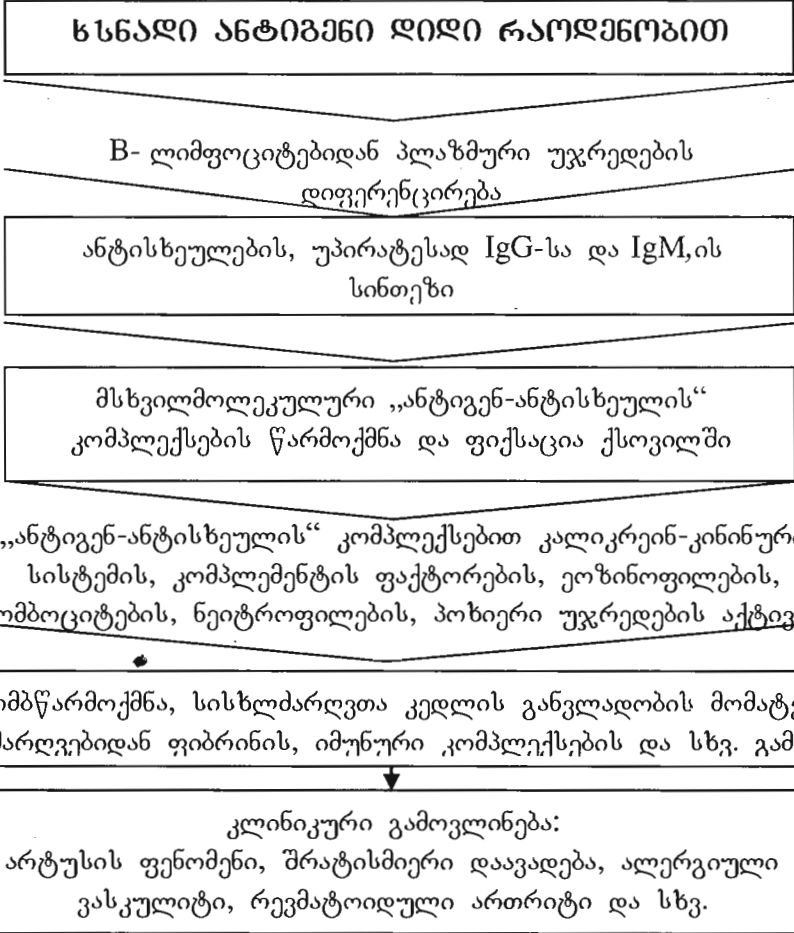 ხსნადი ანტიგენი დიდი რაოდენობით
B- ლიმფოციტებიდან პლაზმური უჯრედების
დიფერენცირება
ანტისხეულების, უპირატესად IgG-სა და IgM,ის
სინთეზი
მსხვილმოლეკულური „ანტიგენ-ანტისხეულის“
კომპლექსების წარმოქმნა და ფიქსაცია ქსოვილში
„ანტიგენ-ანტისხეულის“ კომპლექსებით კალიკრეინ-კინინური
სისტემის, კომპლემენტის ფაქტორების, ეოზინოფილების,
ომბოციტების, ნეიტროფილების, პოხიერი უჯრედების აქტივ
იმბწარმოქმნა, სისხლძარღვთა კედლის განვლადობის მომატე
მარღვებიდან ფიბრინის, იმუნური კომპლექსების და სხვ. გამ
კლინიკური გამოვლინება:
არტუსის ფენომენი, შრატისმიერი დაავადება, ალერგიული
ვასკულიტი, რევმატოიდული ართრიტი და სხვ.